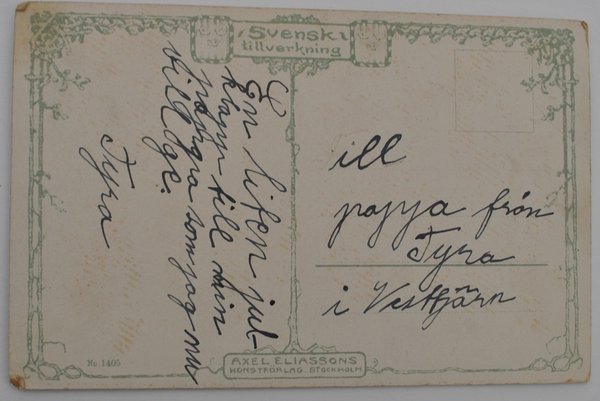 Svensk
tillverkning
En liten jul-
klapp till min
pappa som jag nu
vill ge.
Tyra
ill
pappa från
Tyra
i Vesttjärn
No 1405
AXEL ELIASSONS
KONSTFÖRLAG. STOCKHOLM